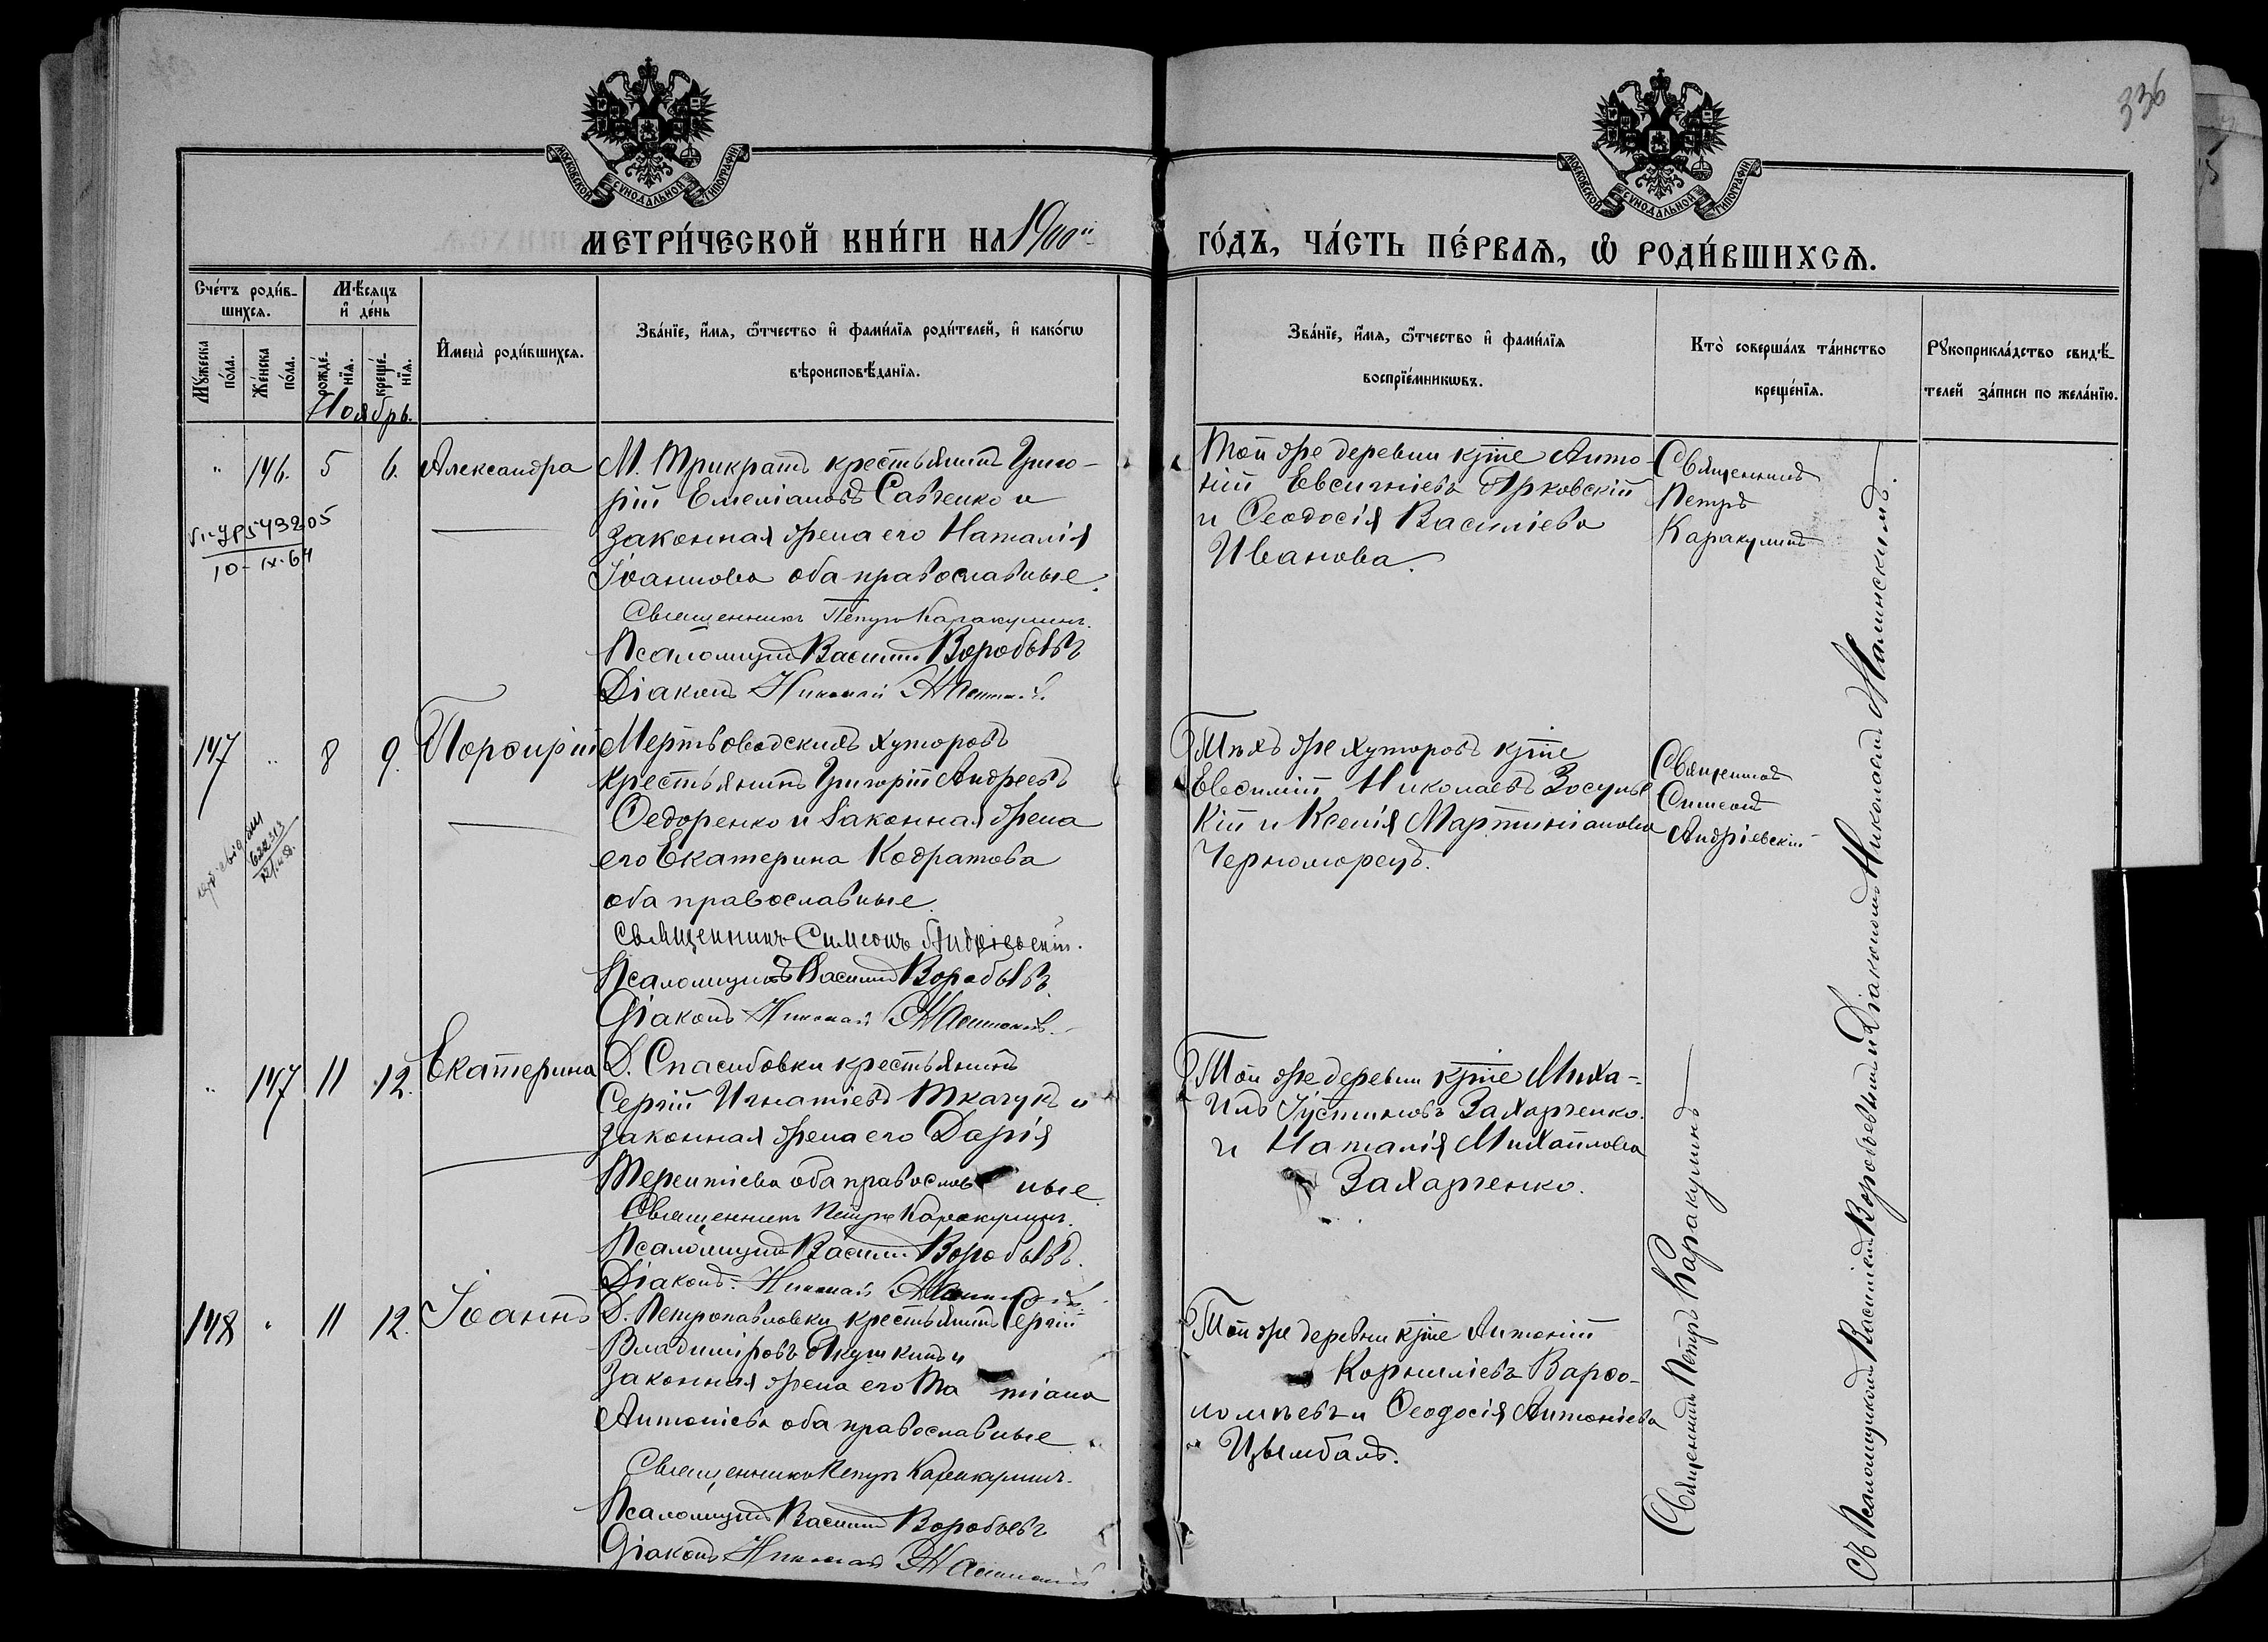 336
МОСКОВСКОЙ СѴНОДАЛЬНОЙ ТИПОГРАФІИ
МОСКОВСКОЙ СѴНОДАЛЬНОЙ ТИПОГРАФІИ
МЕТРИ́ЧЕСКОЙ КНИ́ГИ НА 1900й
ГО́ДЪ, ЧА́СТЬ ПЕ́РВАѦ, Ѡ҆ РОДИ́ВШИХСѦ.
Сче́тъ роди́в-
шихсѧ.
Мꙋ́жеска по́ла.
Же́нска по́ла.
Мѣ́сѧцъ
и҆ де́нь
рожде́-
нїѧ.
креще́-
нїѧ.
Ноябрь.
И҆мена̀ роди́вшихсѧ.
Зва́нїе, и҆́мѧ, ѻ҆́тчество и҆ фами́лїѧ роди́телей, и҆ како́гѡ
вѣроисповѣ́данїѧ.
Зва́нїе, и҆́мѧ, ѻ҆́тчество и҆ фами́лїѧ
воспрїе́мникѡвъ.
Кто̀ соверша́лъ та́инство
креще́нїѧ.
Рꙋкоприкла́дство свидѣ́-
телей за́писи по жела́нїю.
" 146. 5 6. Александра
М. Трикратъ крестьянинъ Григо-
рій Емеліановъ Савченко и
законная жена его Наталія
Іоаннова оба православные.
Священникъ Петръ Каракулинъ.
Псаломщикъ Василій Воробьевъ
Діаконъ Николай
Той же деревни кр̃не Анто-
ній Евсигніевъ Ярковскій
и Ѳеодосія Василіева
Иванова.
Священникъ
Петръ
Каракулинъ
10-IX-64
147 " 8 9. Порфирій
Мертвоводскихъ хуторовъ
крестьянинъ Григорій Андреевъ
Ѳедоренко и законная жена
его Екатерина Кодратова
оба православные.
Священникъ Симеонъ Андріевскій.
Псаломщикъ Василій Воробьевъ
Діаконъ Николай
Тѣхъ же хуторовъ кр̃не
Николаевъ
кій и Ксенія Мартиніановна
Черноморецъ.
Священникъ
Симеонъ
Андріевскій
" 147 11 12. Екатерина
Д. Спасибовки крестьянинъ
Сергій Игнатіевъ Ткачукъ и
законная жена его Дарія
Терентіева оба православные
Священникъ Петръ Каракулинъ.
Псаломщикъ Василій Воробьевъ.
Діаконъ Николай
Той же деревни кр̃не Миха-
илъ Іустиновъ Захарченко
и Наталія Михайлова
Захарченко.
148 " 11 12. Іоаннъ
Д. Петропавловки крестьянинъ Сергій
Владиміровъ Якушкинъ и
законная жена его Татіана
Антоніева оба православные
Священникъ Петръ Каракулинъ.
Псаломщикъ Василій Воробьевъ
Діаконъ Николай
Той же деревни кр̃не Антоній
Корниліевъ Варѳо-
ломѣевъ и Ѳеодосія Антоніева
Цымбалъ.
Священникъ Петръ Каракулинъ
Съ Псаломщикомъ Василіемъ Воробьевымъ и Діакономъ Николаемъ